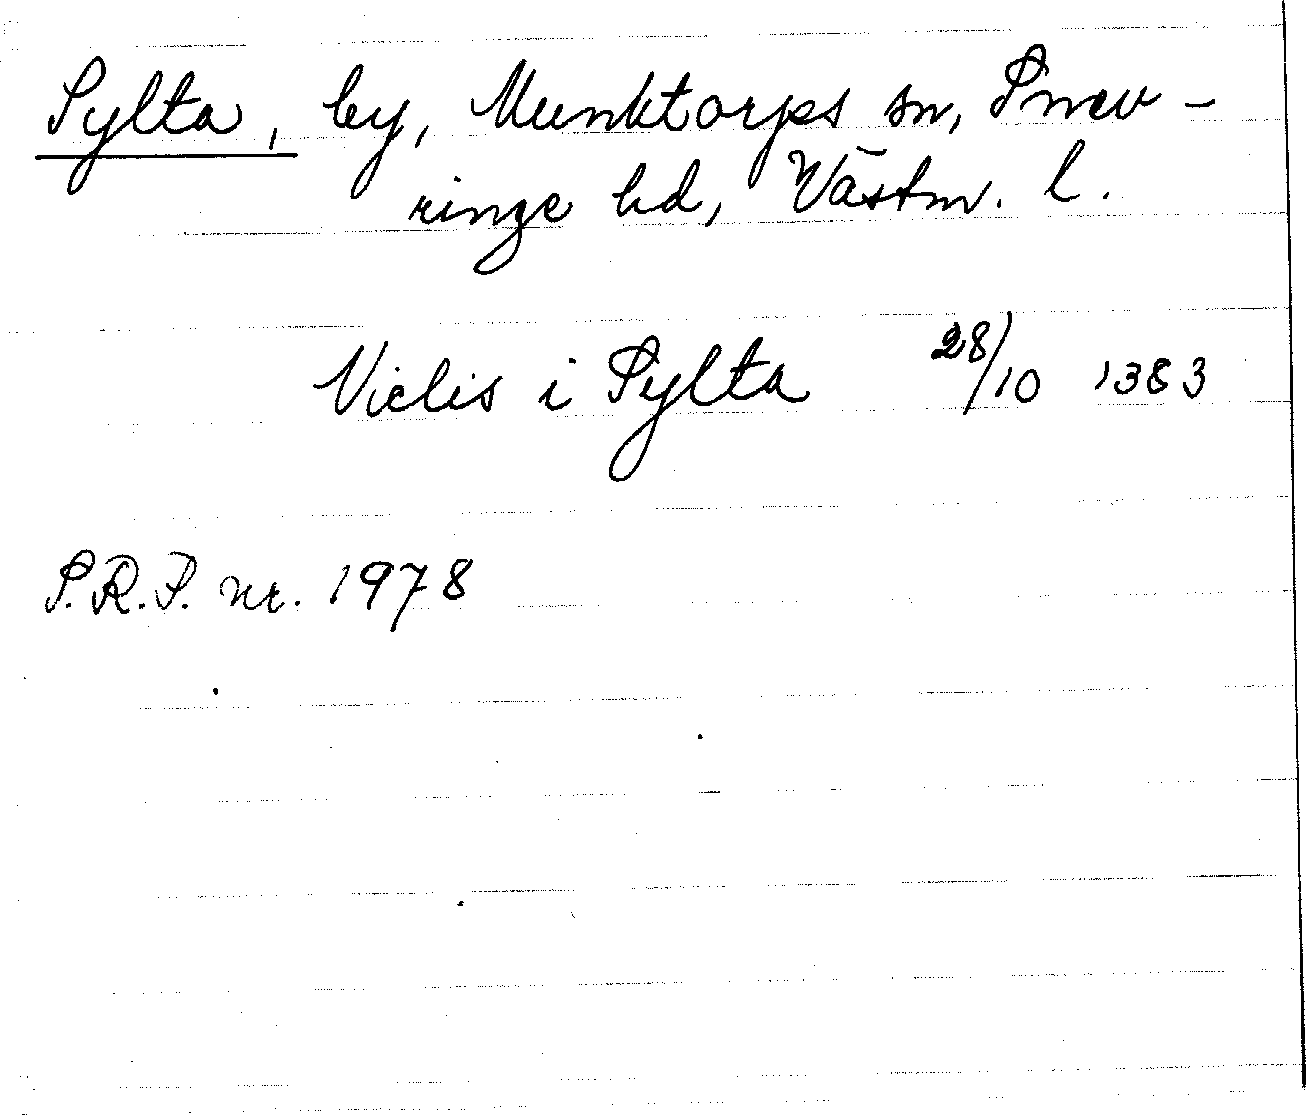 Sylta, by, Munktorps sn, Snev-
ringe hd, Västm. l.
Niclis i Sylta 28/10 1383
S.R.P. nr. 1978